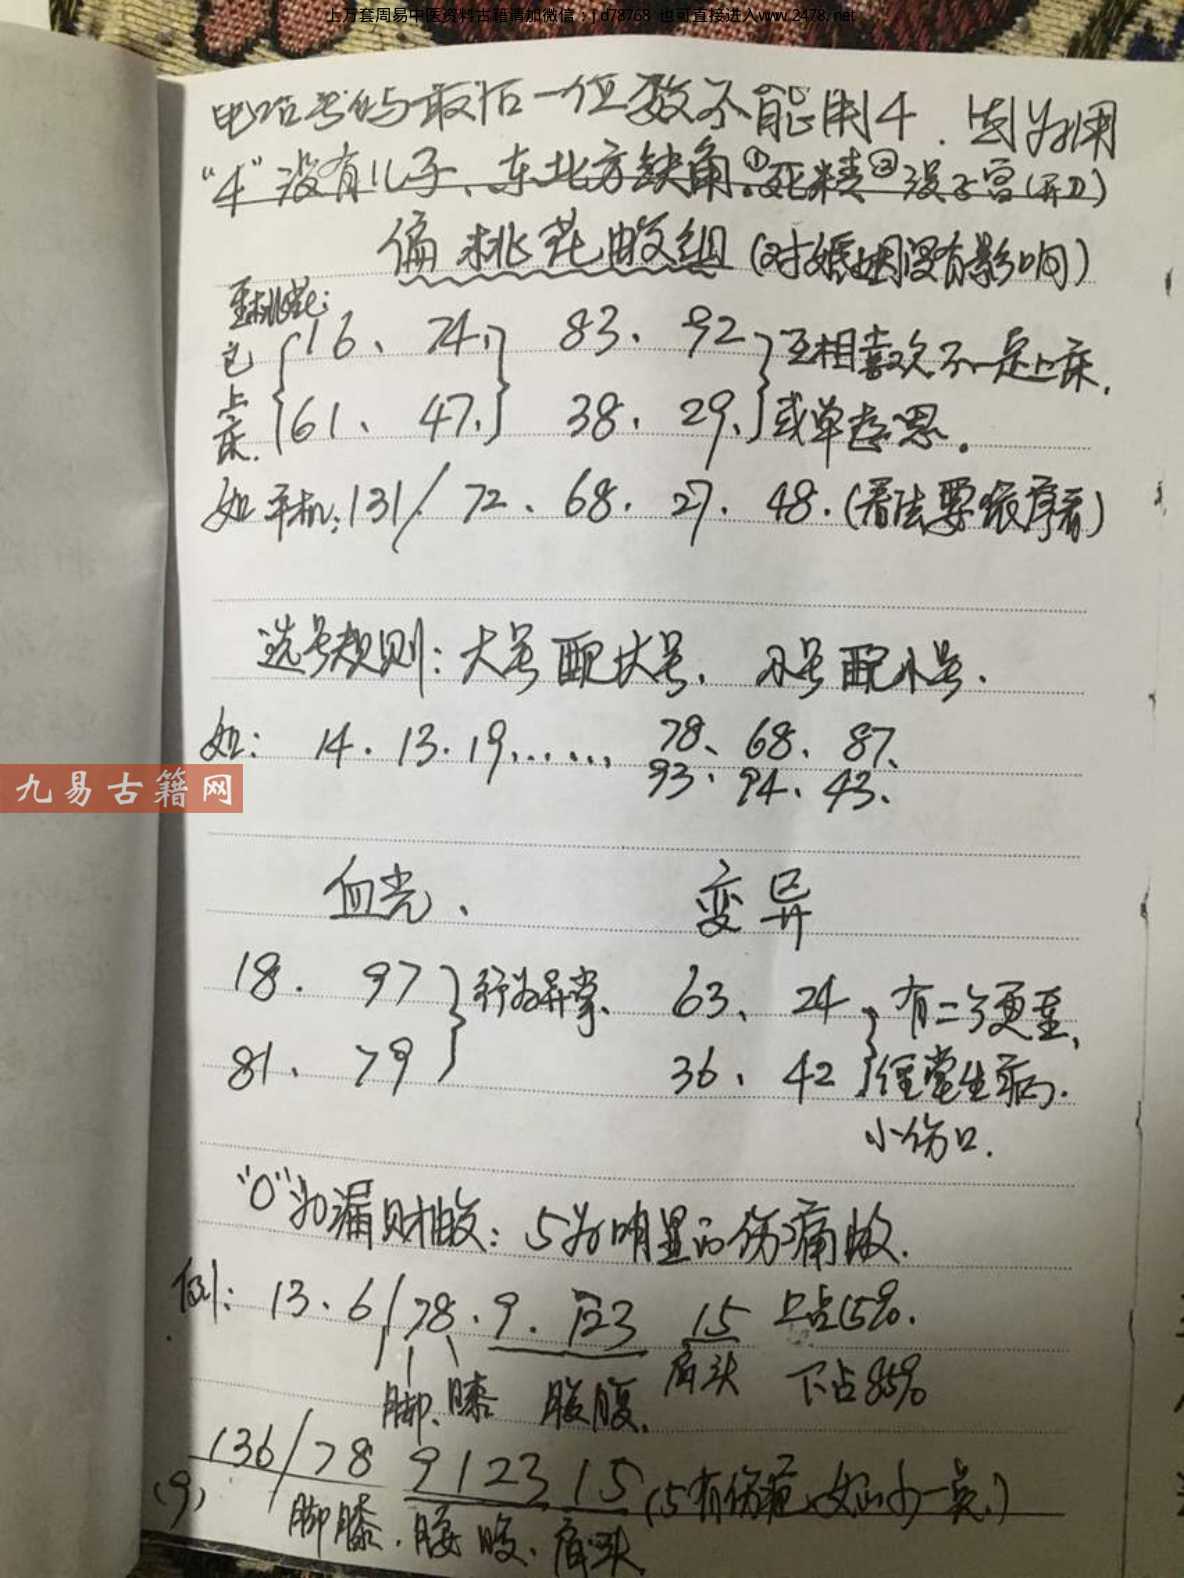 上万套周易中医资料古籍请加微信：jd78768 也可直接进入www.2478.net
电话号码与最后一位数不能用4.
"4"没有儿子、东北方缺角。①死精②没子宫(开刀)
偏桃花数组(对婚姻没有影响)
桃花:
已上床.
16、74、 83、92 互相喜欢不一定上床.
61、47. 38、29、或单相思。
如手机:131/72、68、27、48.(看法要依序看)
选号规则:大号配大号、小号配小号.
如: 14.13.19......
78、68、87、
93、94、43、
九易古籍网
血光、 变异
18. 97 行为异常、 63、24
81、79 36、42 经常生病.
小伤口.
"0"为漏财数: 5为明显的伤痛数.
例: 13.6/78.9.123 15 上占15%.
脚、膝 腰腹. 肩头 下占85%
136/78 9123 15
(9)
脚膝.腰腹、肩头